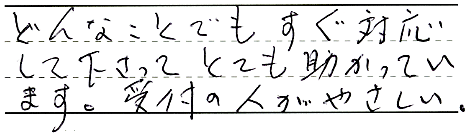 どんなことでもすぐ対応
して下さってとても助かってい
ます。受付の人がやさしい。